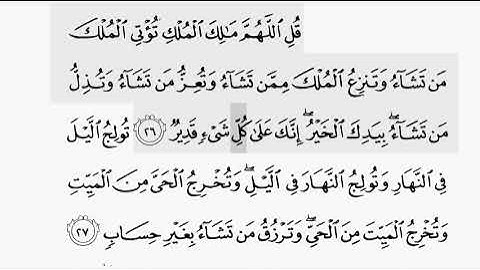 قُلِ ٱللَّهُمَّ مَٰلِكَ ٱلْمُلْكِ تُؤْتِى ٱلْمُلْكَ
مَن تَشَآءُ وَتَنزِعُ ٱلْمُلْكَ مِمَّن تَشَآءُ وَتُعِزُّ مَن تَشَآءُ وَتُذِلُّ
مَن تَشَآءُ ۖ بِيَدِكَ ٱلْخَيْرُ ۖ إِنَّكَ عَلَىٰ كُلِّ شَىْءٍ قَدِيرٌ ٢٦ تُولِجُ ٱلَّيْلَ
فِى ٱلنَّهَارِ وَتُولِجُ ٱلنَّهَارَ فِى ٱلَّيْلِ ۖ وَتُخْرِجُ ٱلْحَىَّ مِنَ ٱلْمَيِّتِ
وَتُخْرِجُ ٱلْمَيِّتَ مِنَ ٱلْحَىِّ ۖ وَتَرْزُقُ مَن تَشَآءُ بِغَيْرِ حِسَابٍ ٢٧